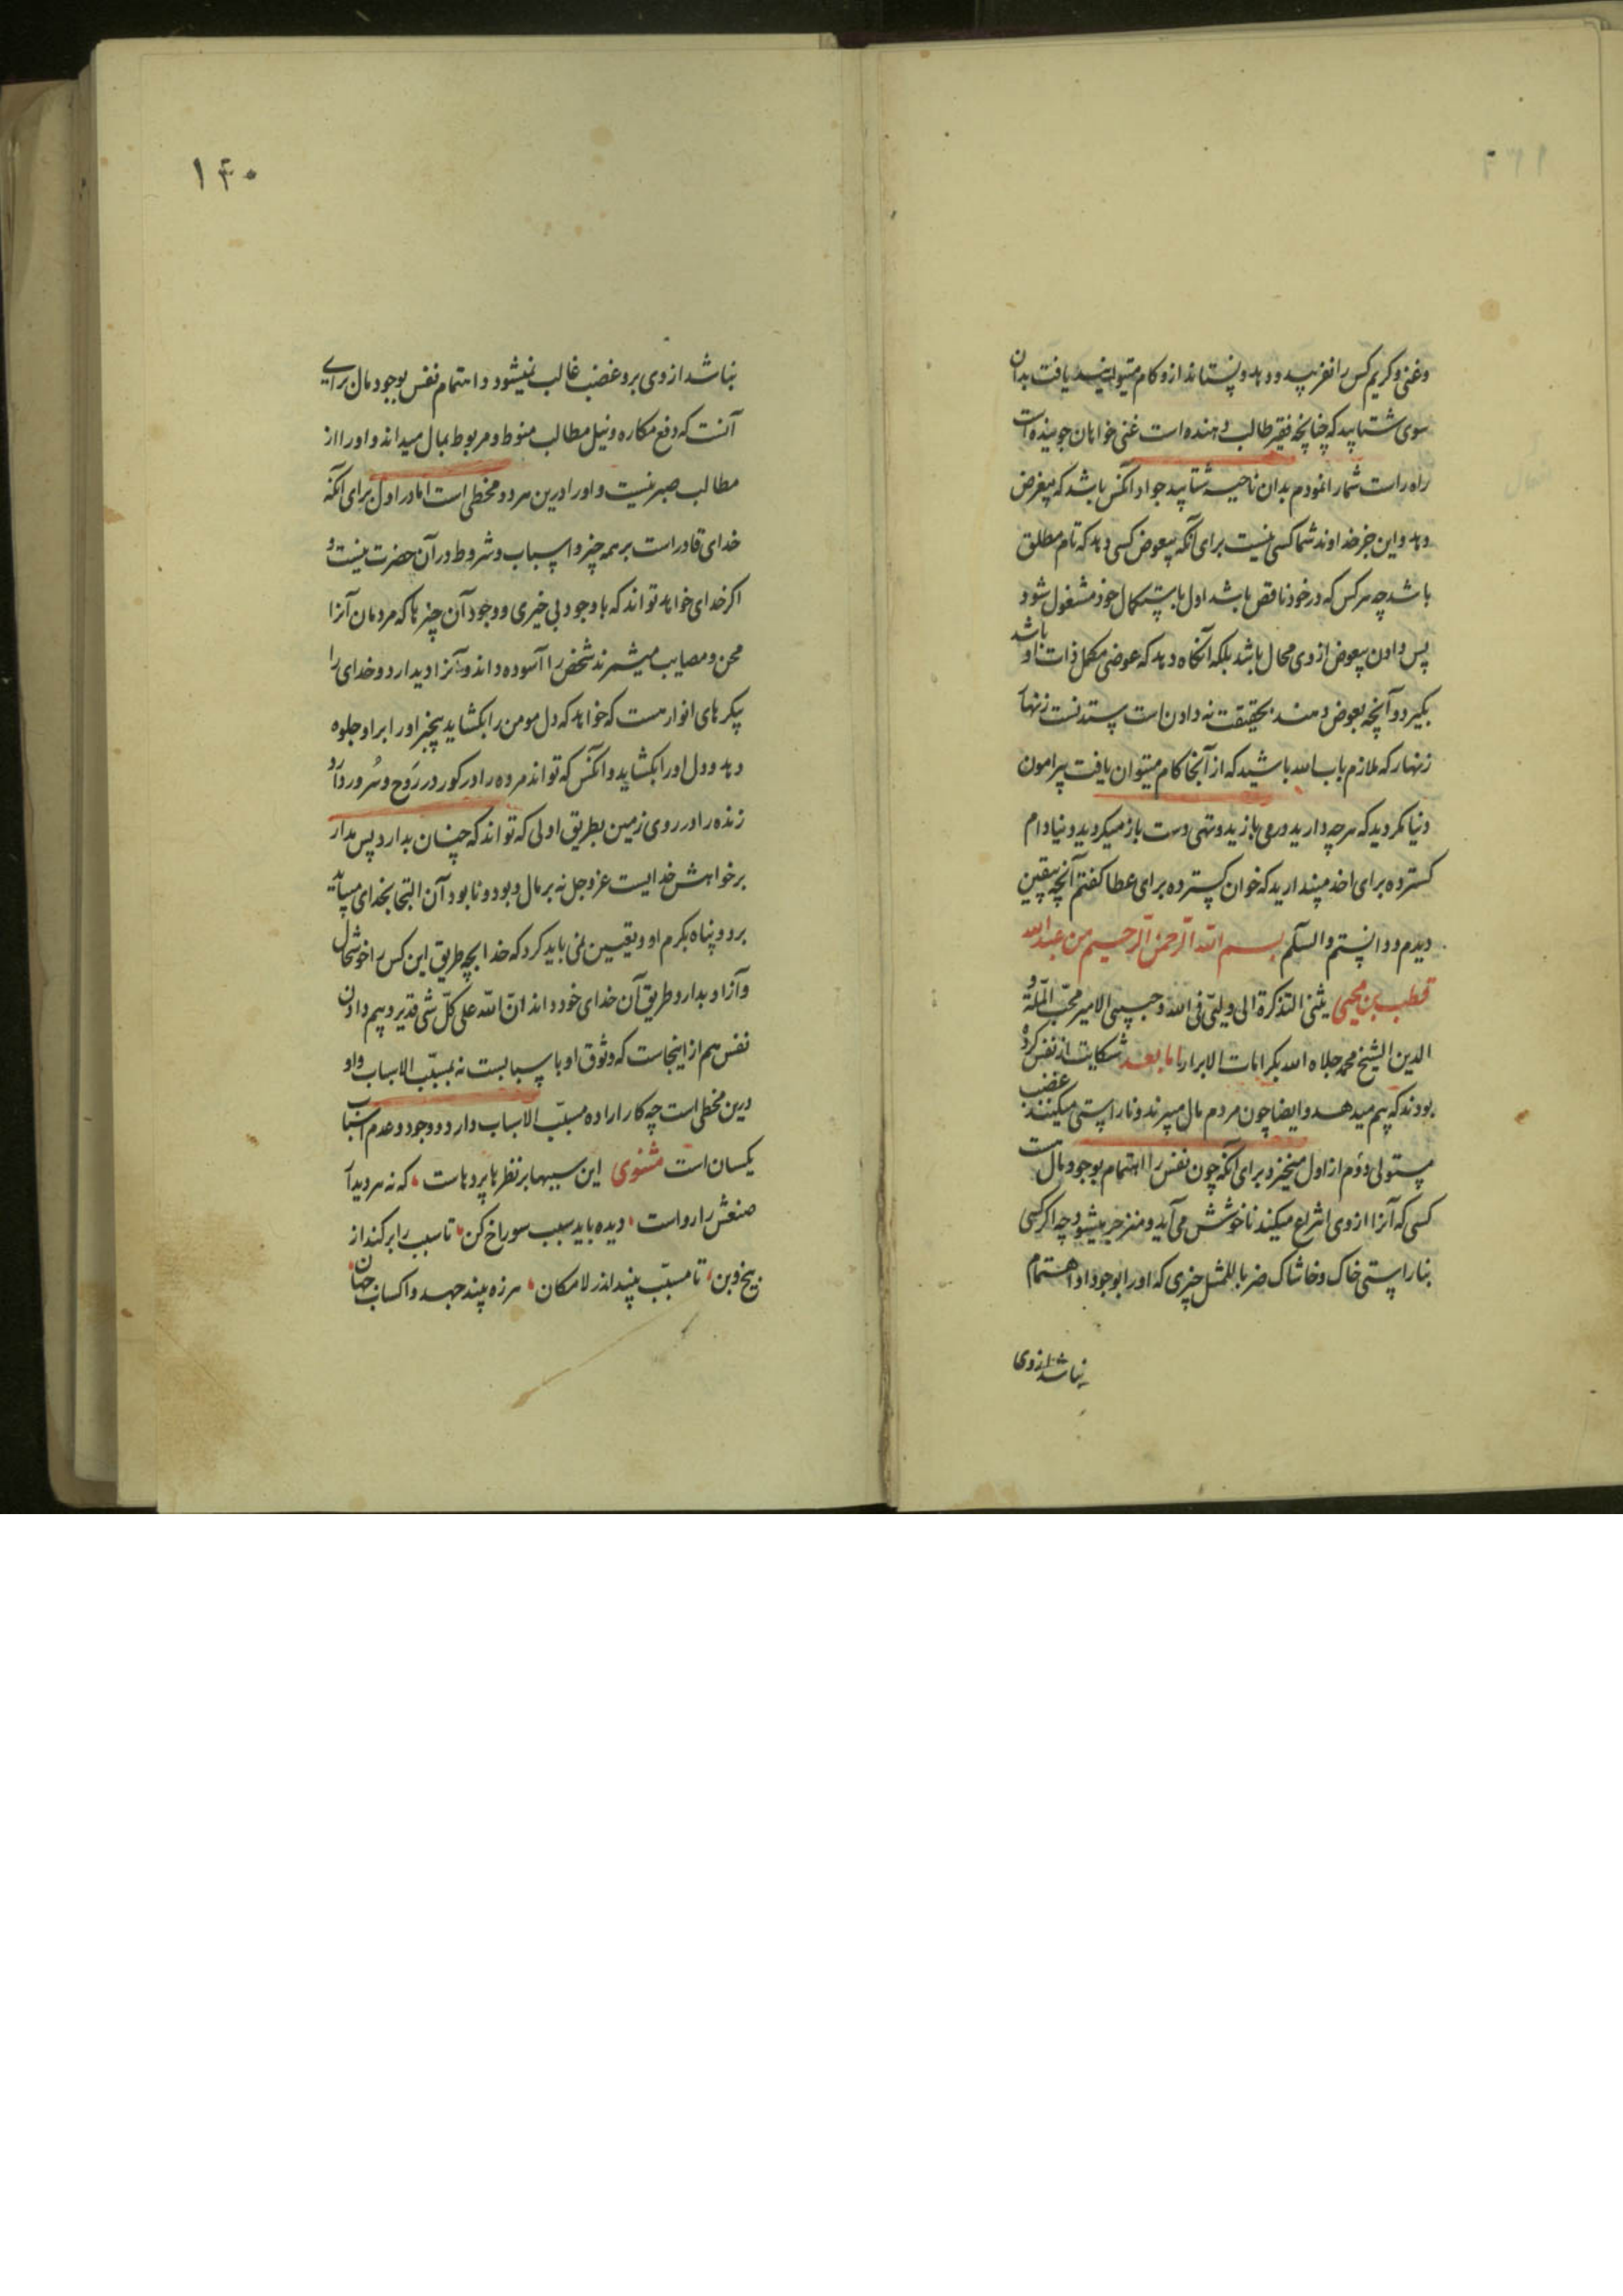 وغنی و کریم کس را نفریبد و دهد و نستاند ازو کام میتوانید یافت بدان
سوی شتابید که چنانچه فقیر طالب دهنده است غنی خواهان جوینده است
راه راست شما را نمودم بدان ناحیه شتابید جواد آنکس باشد که بیغرض
دهد و این جز خداوند شما کسی نیست برای آنکه بیعوض کسی دهد که تام مطلق
باشد چه هر کس که در خود ناقص باشد اول باستکمال خود مشغول شود و
پس دادن بیعوض از وی محال باشد بلکه آنگاه دهد که عوضی مکمل ذات او باشد
بگیرد و آنچه بعوض دهند بحقیقت نه دادن است ستدنست زنهار
زنهار که ملازم باب الله باشید که از آنجا کام میتوان یافت پیرامون
دنیا نکردید که هر چه دارید درمی بازید و تهی دست باز میکردید دنیا دام
کسترده برای اخذ مپندارید که خوان کسترده برای عطا کفتم آنچه بیقین
دیدم و دانستم والسلم بسم الله الرحمن الرحیم من عبدالله
قطب بن محیی یثنی التذکرة الی ولیّی فی الله و حبیبی الامیر محبّ الملّة و
الدین الشیخ محمد جلاه الله بکرامات الابرار اما بعد شکایت از نفس کرده
بودند که بیم میدهد و ایضا چون مردم مال میبرند و ناراستی میکنند غضب
مستولی دوم از اول میخیزد برای آنکه چون نفس را اهتمام بوجود مال هست
کسی که آنرا از وی انتزاع میکند ناخوشش می آید و منزجر میشود چه اگر کسی
بناراستی خاک و خاشاک ضربا للمثل چیزی که او را بوجود او اهتمام
نباشد از وی
۱۴۰
نباشد از وی برد غضب غالب نمیشود و اهتمام نفس بوجود مال برای
آنست که دفع مکاره و نیل مطالب منوط و مربوط بمال میداند و او را از
مطالب صبر نیست و او را درین هر دو مخطی است اما در اول برای آنکه
خدای قادر است بر همه چیز و اسباب و شروط در آن حضرت نیست و
اکر خدای خواهد تواند که با وجود بی خیری و وجود آن چیزها که مردمان آنرا
محن و مصایب میشمرند شخص را آسوده دارد و آزاد بدارد و خدای را
پیکرهای انوار هست که خواهد که دل مومن را بکشاید بیخبر او را بر او جلوه
دهد و دل او را بکشاید و آنکس که تواند مرده را در کور در رَوح و سُرور دارد
زنده را در روی زمین بطریق اولی که تواند که چنان بدارد پس مدار
بر خواهش خدایست عزوجل نه بر مال و بود و نابود آن التجا بخدای میباید
برد و پناه بکرم او و تعیین نمی باید کرد که خدا بچه طریق این کس را خوشحال
و آزاد بدارد طریق آن خدای خود داند انّ الله علی کلّ شی قدیر و بیم دادن
نفس هم از اینجاست که وثوق او باسبابست نه بمسبّب الاسباب و او
درین مخطی است چه کار اراده مسبّب الاسباب دارد و وجود و عدم اسباب
یکسان است مثنوی این سببها بر نظرها پرده هاست، که نه هر دیدار
صنعش را رواست، دیده باید سبب سوراخ کن، تا سبب را برکند از
بیخ و بن، تا مسبّب بیند اندر لامکان، هرزه بیند جهد و اکساب جهان،